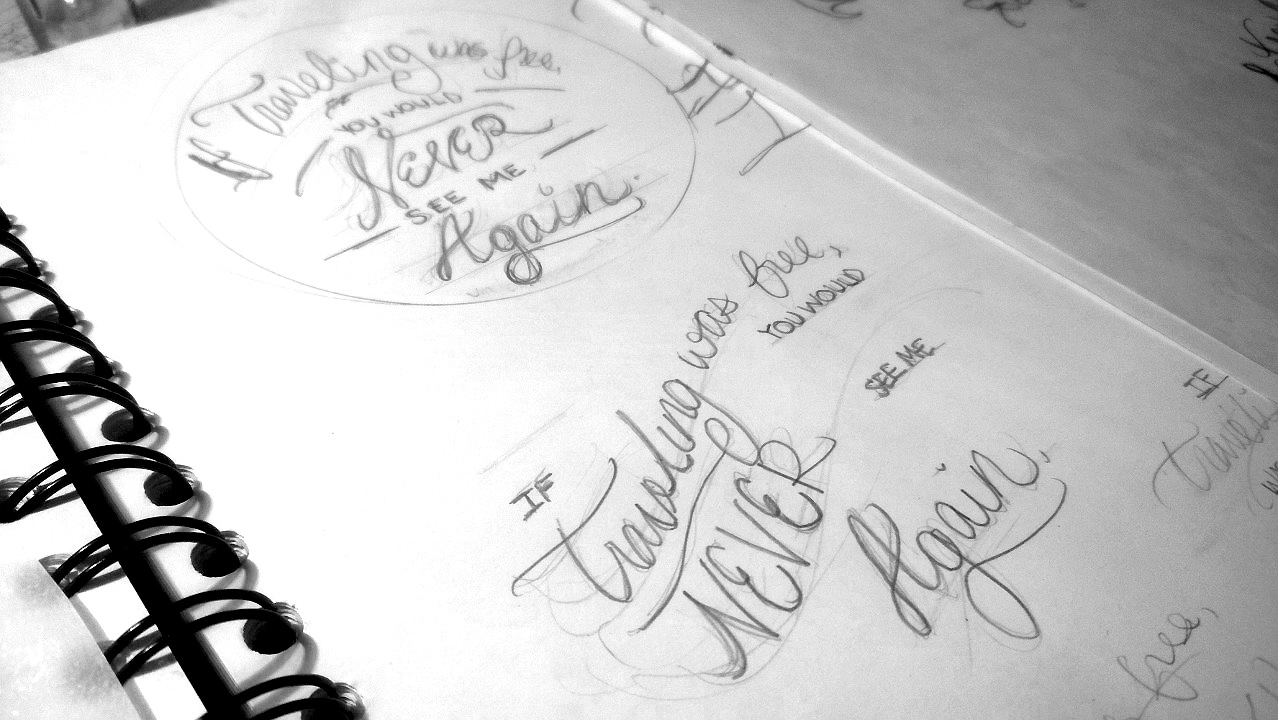 If Traveling was free.
YOU WOULD
NEVER
SEE ME
Again.
IF
Traveling was free,
YOU WOULD
NEVER
SEE ME
Again.
IF
free,